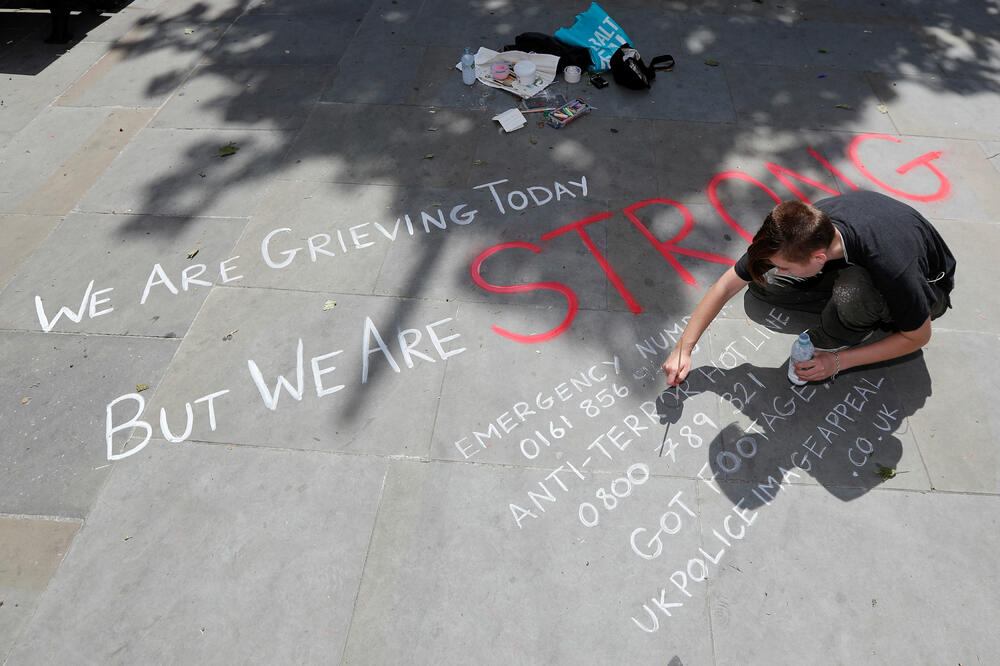 WE ARE GRIEVING TODAY
BUT WE ARE STRONG
EMERGENCY NUMB
0161 856
ANTI-TERROR HOTLINE
0800 789 321
GOT FOOTAGE
UKPOLICEIMAGEAPPEAL
.CO.UK